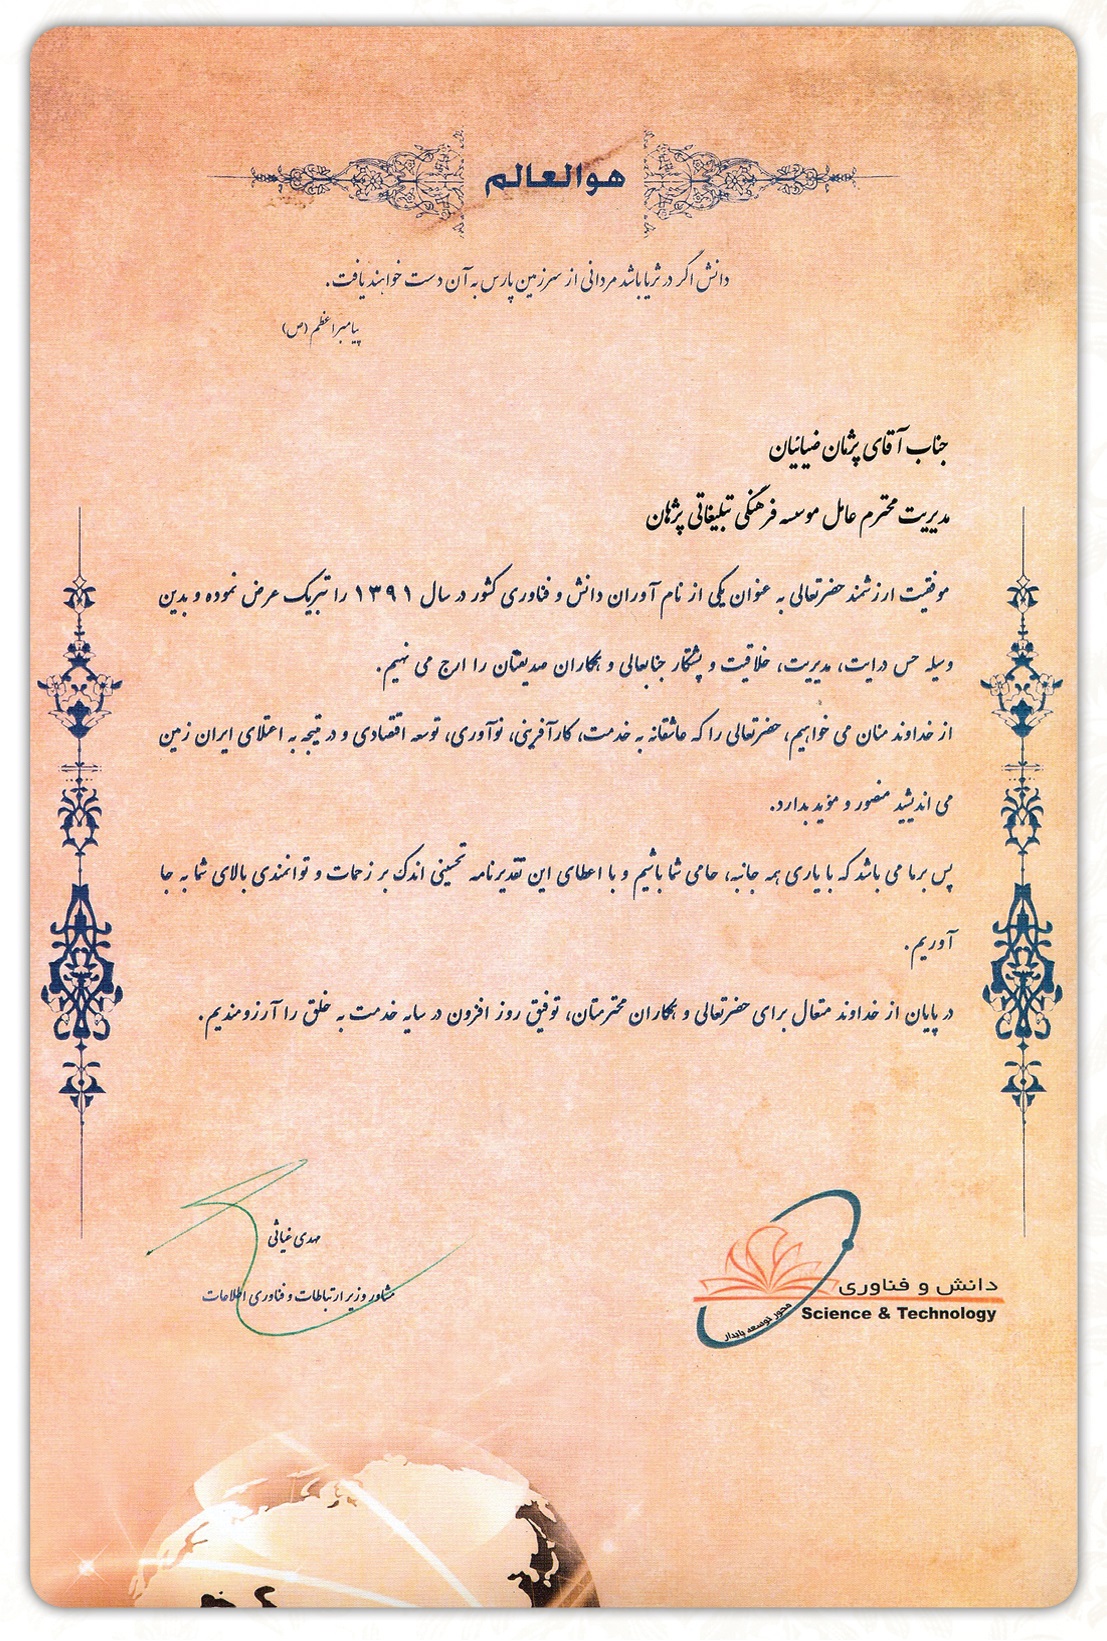 هوالعالم
دانش اگر در ثریا باشد مردانی از سرزمین پارس به آن دست خواهند یافت.
پیامبر اعظم (ص)
جناب آقای پژمان ضیائیان
مدیریت محترم عامل موسسه فرهنگی تبلیغاتی پژمان
موفقیت ارزشمند حضرتعالی به عنوان یکی از نام آوران دانش و فناوری کشور در سال ۱۳۹۱ را تبریک عرض نموده و بدین
وسیله حس درایت، مدیریت، خلاقیت و پشتکار جنابعالی و همکاران صدیقتان را ارج می نهیم.
از خداوند منان می خواهیم، حضرتعالی را که عاشقانه به خدمت، کارآفرینی، نوآوری، توسعه اقتصادی و در نتیجه به اعتلای ایران زمین
می اندیشید منصور و موید بدارد.
پس بر ما می باشد که با یاری همه جانبه، حامی شما باشیم و با اعطای این تقدیرنامه تحسینی اندک بر زحمات و توانمندی بالای شما به جا
آوریم.
در پایان از خداوند متعال برای حضرتعالی و همکاران محترمتان، توفیق روز افزون در سایه خدمت به خلق را آرزومندیم.
مهدی غیاثی
مشاور وزیر ارتباطات و فناوری اطلاعات
دانش و فناوری
Science & Technology
محور توسعه پایدار